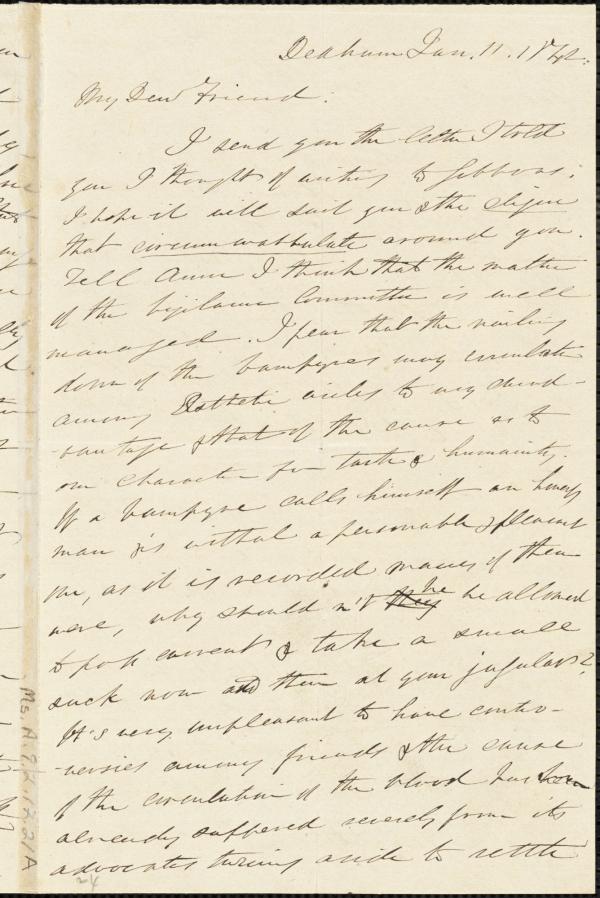 Dedham Jan. 11. 1842.
My Dear Friend:
I send you the letter I told
you I thought of writing to Gibbons.
I hope it will suit you & the clique
that circumvambulate around you.
Tell Anne I think that the matter
of the Vigilance Committee is well
managed. I fear that the nailing
down of the vampyres may circulate
among Esthetic circles to my disad-
-vantage & that of the cause as to
our character for taste & humanity.
If a vampyre calls himself an honest
man & is withal a personable & pleasant
one, as it is recorded many of them
were, why should n't they he be allowed
to pass current & take a small
suck now and then at your jugulars?
It's very unpleasant to have contro-
-versies among friends & the cause
of the circulation of the blood has
already suffered severely from its
advocates turning aside to settle
Ms. A. 1.2